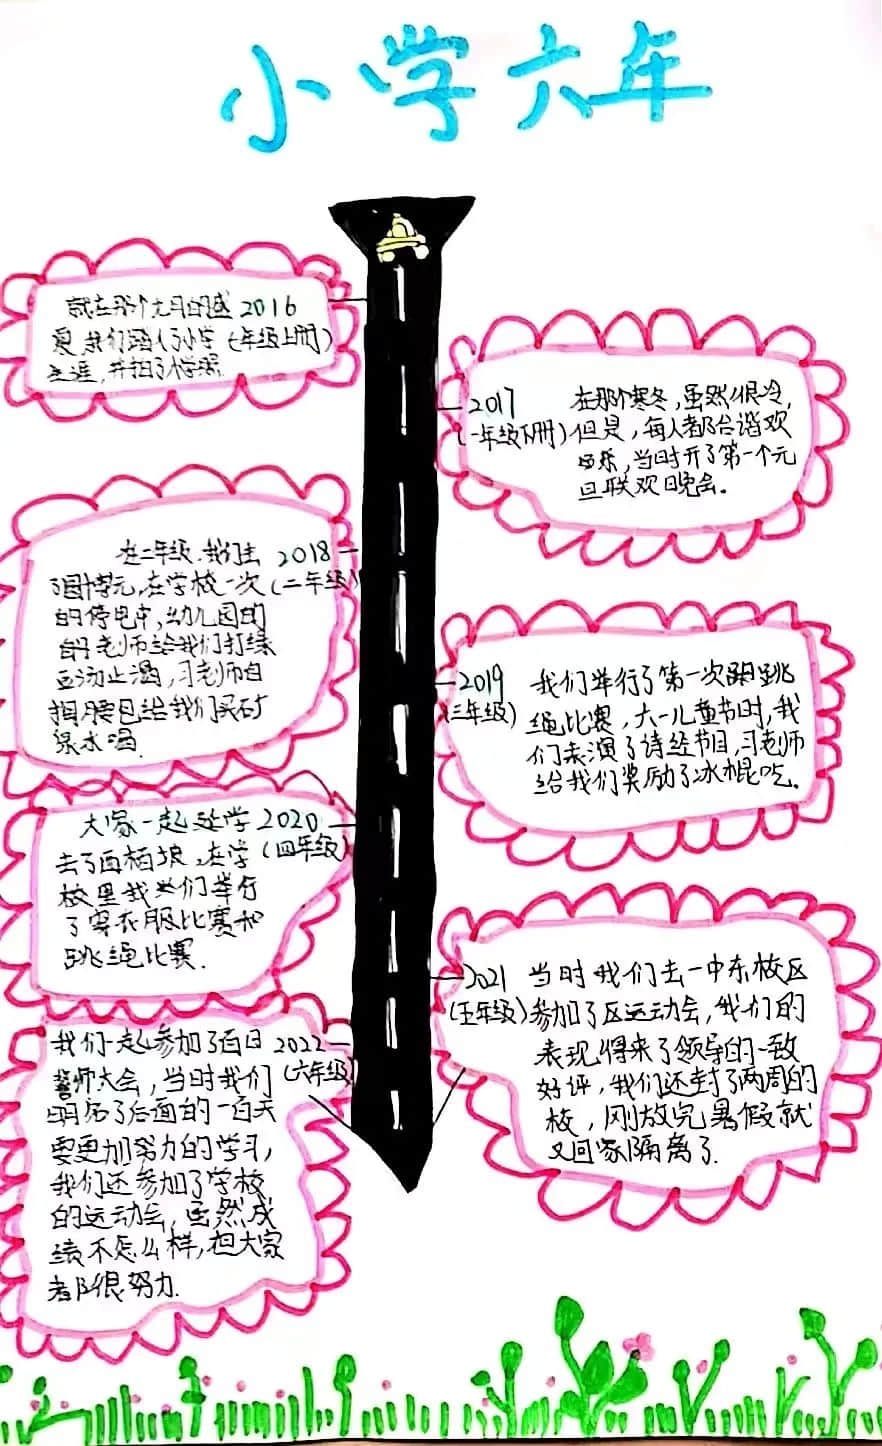 小学六年
就在那个九月的盛 2016
夏,我们踏入了小学(一年级上册)
生涯,并拍了入学照.
2017 在那个寒冬,虽然很冷,
(一年级下册)但是,每人都合谐欢
乐,当时开了第一个元
旦联欢晚会。
在二年级,我们去 2018
了园博元,在学校一次(二年级)
的停电中,幼儿园的
老师给我们打绿
豆汤止渴,刁老师自
掏腰包给我们买矿
泉水喝.
2019 我们举行了第一次跳
(三年级) 绳比赛,六一儿童节时,我
们表演了诗经节目,刁老师
给我们奖励了冰棍吃.
大家一起延学 2020
去了西柏坡,在学(四年级)
校里我们举行
了穿衣服比赛和
跳绳比赛.
2021 当时我们去一中东校区
(五年级)参加了区运动会,我们的
表现得来了领导的一致
好评,我们还封了两周的
校,刚放完暑假就
又回家隔离了.
我们一起参加了百日 2022
誓师大会,当时我们(六年级)
明历了后面的一百天
要更加努力的学习,
我们还参加了学校
的运动会,虽然成
绩不怎么样,但大家
都很努力.